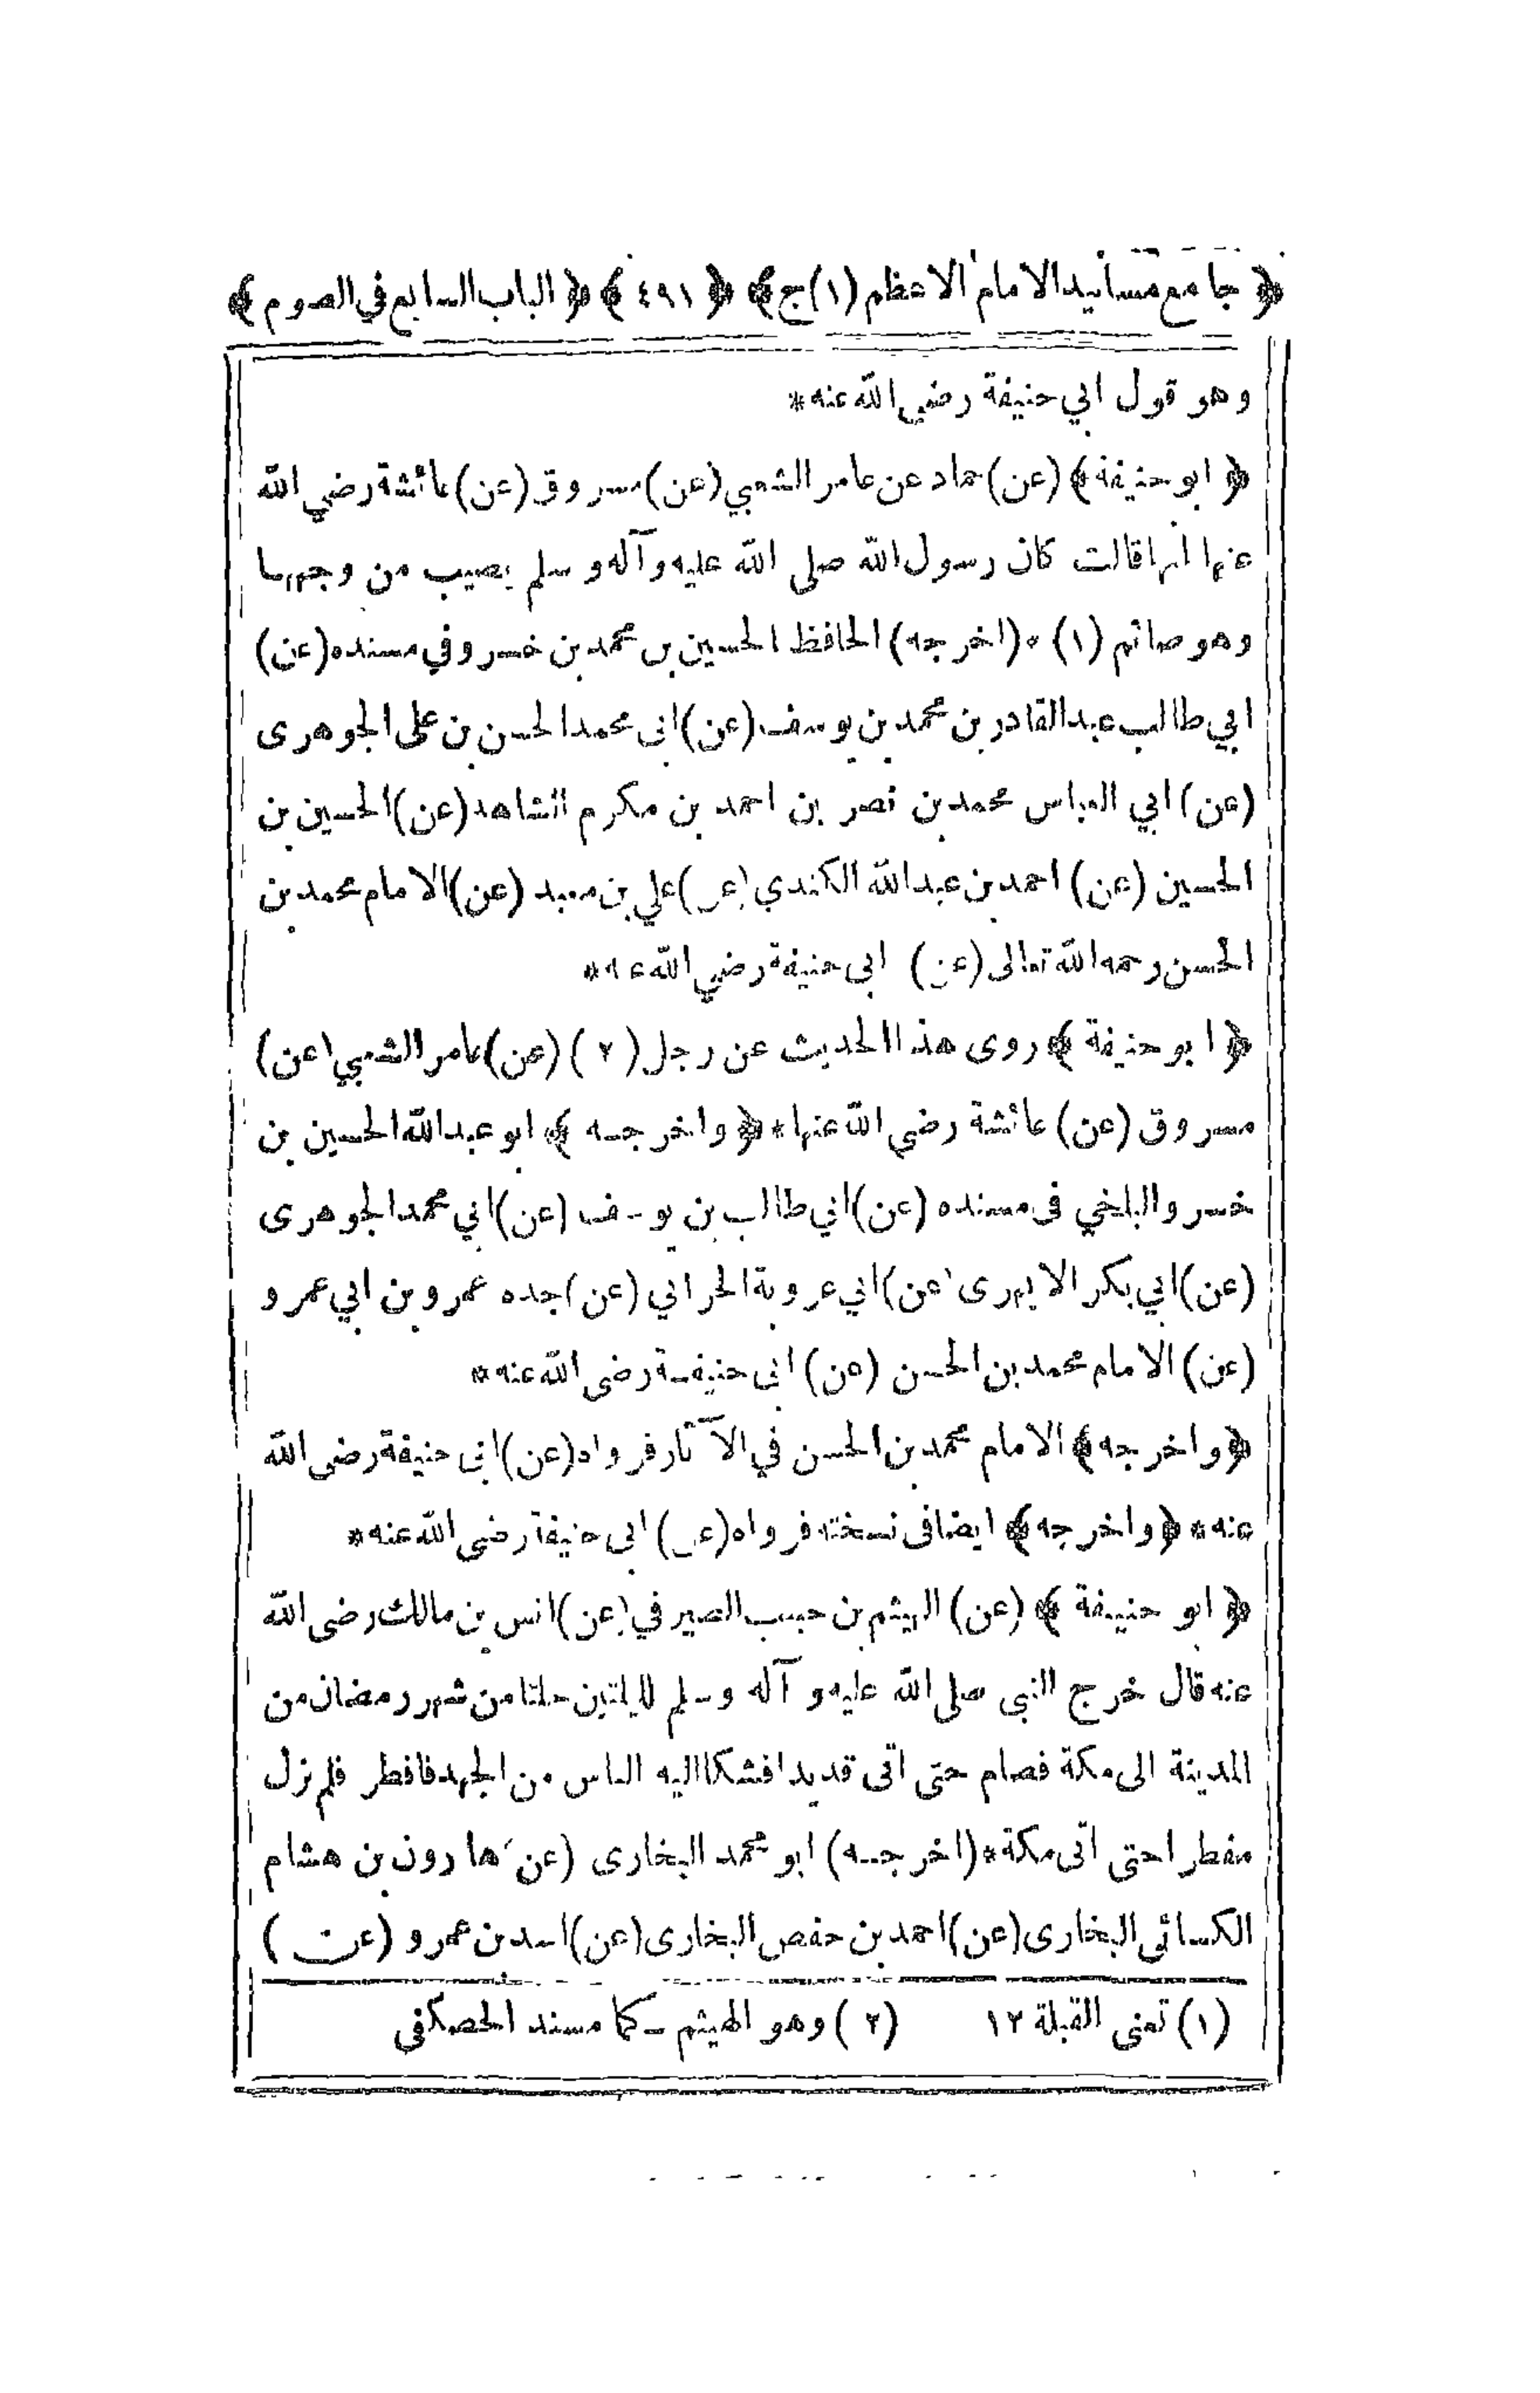 ﴿ جامع مسانيد الامام الاعظم (١) ج ﴾ ﴿ ٤٩١ ﴾ ﴿ الباب السابع في الصوم ﴾
وهو قول ابي حنيفة رضي الله عنه *
﴿ ابو حنيفة ﴾ (عن) حماد عن عامر الشعبي (عن) مسروق (عن) عائشة رضي الله
عنها انها قالت كان رسول الله صلى الله عليه وآله وسلم يصيب من وجهها
وهو صائم (١) * (اخرجه) الحافظ الحسين بن محمد بن خسرو في مسنده (عن)
ابي طالب عبد القادر بن محمد بن يوسف (عن) ابي محمد الحسن بن على الجوهرى
(عن) ابي العباس محمد بن نصر بن احمد بن مكرم الشاهد (عن) الحسين بن
الحسين (عن) احمد بن عبد الله الكندي (عن) علي بن معبد (عن) الامام محمد بن
الحسن رحمه الله تعالى (عن) ابى حنيفة رضي الله عنه *
﴿ ابو حنيفة ﴾ روى هذا الحديث عن رجل (٢) (عن) عامر الشعبي (عن)
مسروق (عن) عائشة رضي الله عنها * ﴿ واخرجه ﴾ ابو عبد الله الحسين بن
خسرو البلخي فى مسنده (عن) ابي طالب بن يوسف (عن) ابي محمد الجوهرى
(عن) ابي بكر الابهرى (عن) ابي عروبة الحراني (عن) جده عمرو بن ابي عمرو
(عن) الامام محمد بن الحسن (عن) ابى حنيفة رضى الله عنه *
﴿ واخرجه ﴾ الامام محمد بن الحسن في الآثار فرواه (عن) ابى حنيفة رضى الله
عنه * ﴿ واخرجه ﴾ ايضا فى نسخته فرواه (عن) ابى حنيفة رضى الله عنه *
﴿ ابو حنيفة ﴾ (عن) الهيثم بن حبيب الصيرفي (عن) انس بن مالك رضى الله
عنه قال خرج النبى صلى الله عليه وآله وسلم لليلتين خلتا من شهر رمضان من
المدينة الى مكة فصام حتى اتى قديدا فشكا اليه الناس من الجهد فافطر فلم نزل
مفطرا حتى اتى مكة * (اخرجه) ابو محمد البخارى (عن) هارون بن هشام
الكسائى البخارى (عن) احمد بن حفص البخارى (عن) اسد بن عمرو (عن)
(١) تعنى القبلة ١٢ (٢) وهو الهيثم ـ كما مسند الحصكفى